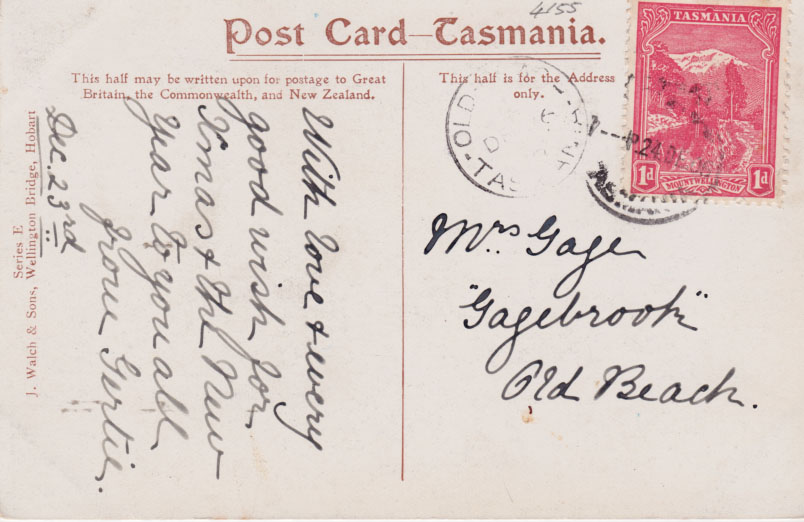 4155
Post Card—Tasmania.
This half may be written upon for postage to Great
Britain, the Commonwealth, and New Zealand.
This half is for the Address
only.
With love & every
good wish for
Xmas & the New
Year to you all
from Gertie.
Dec. 23rd
Series E
J. Walch & Sons, Wellington Bridge, Hobart
Mrs Gage
"Gagebrook"
Old Beach.
TASMANIA
1d
MOUNT WELLINGTON
1d
OLD
TAS
24 DE